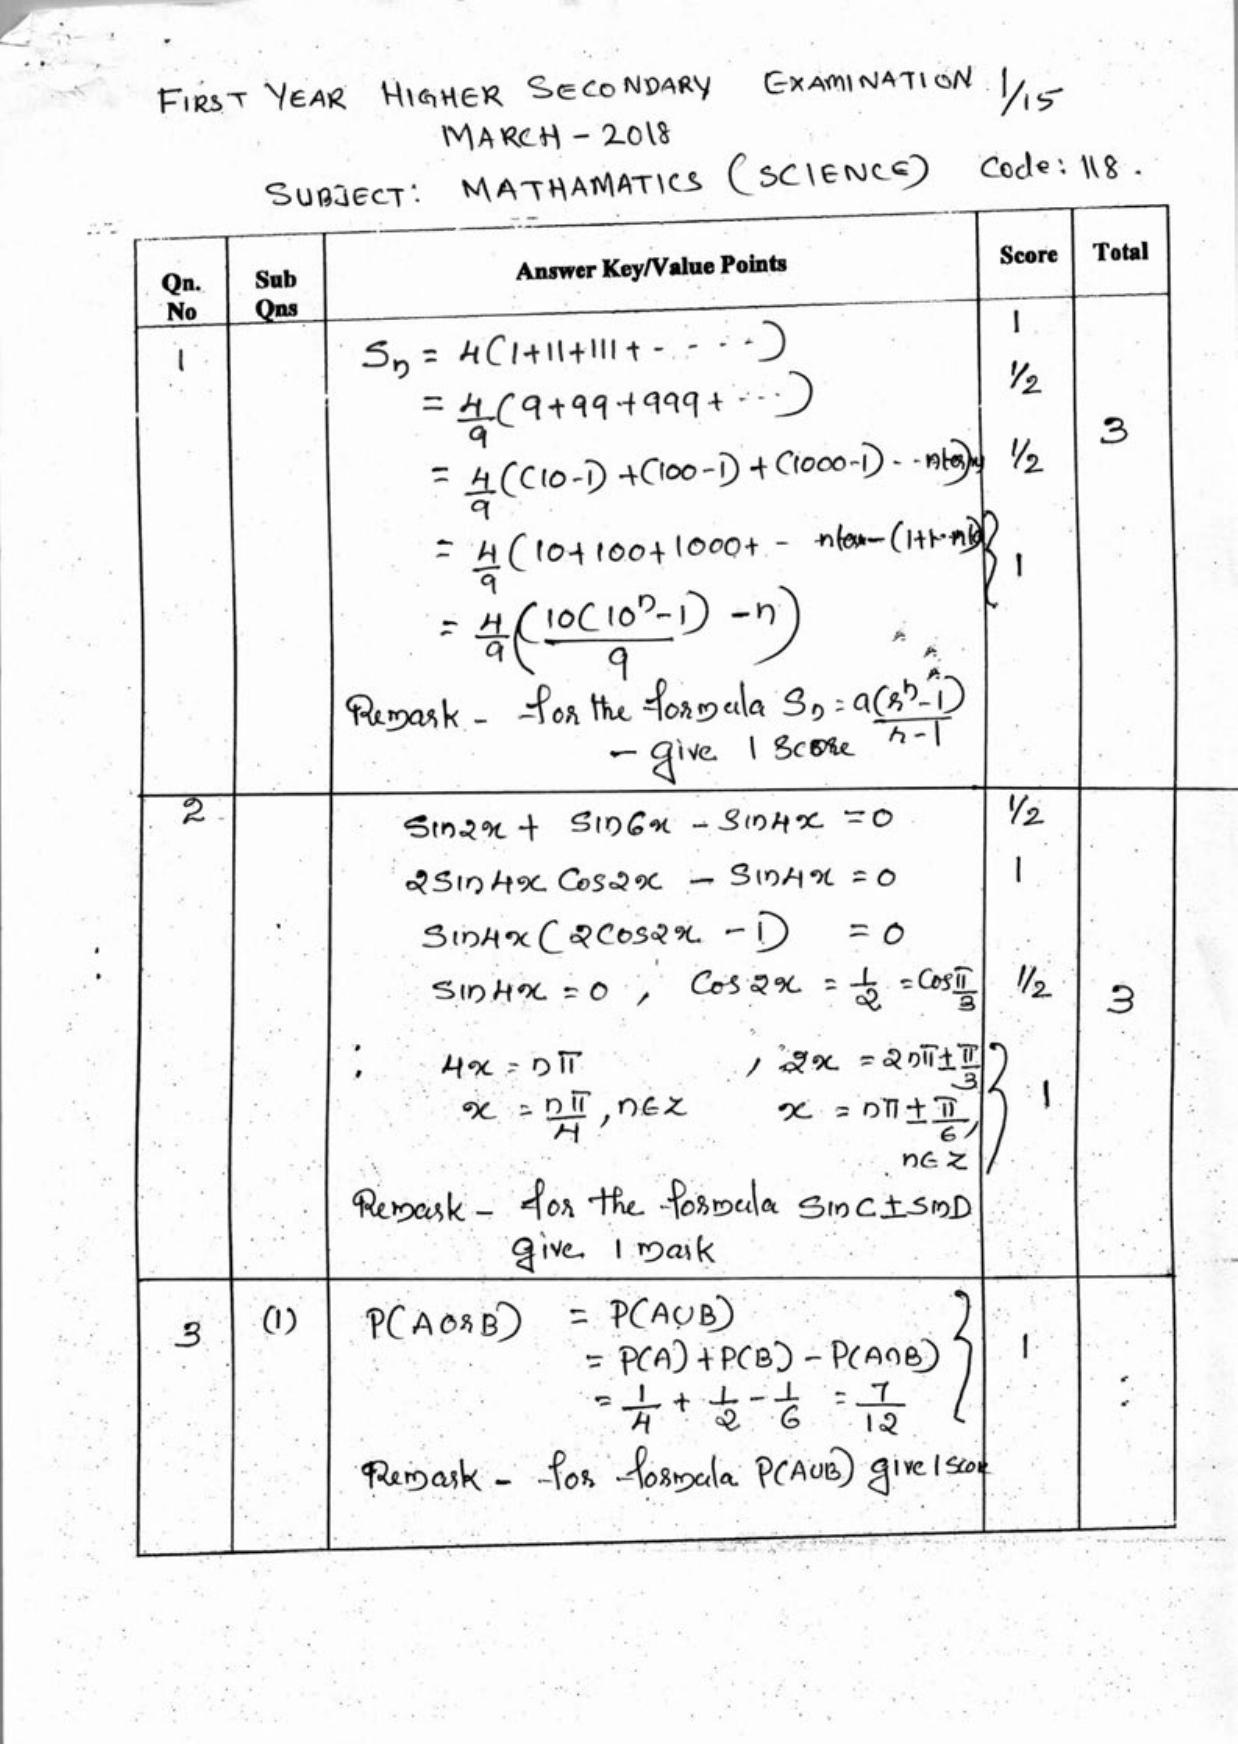 FIRST YEAR HIGHER SECONDARY EXAMINATION 1/15
MARCH - 2018
SUBJECT: MATHAMATICS (SCIENCE) Code: 118.
Qn. No Sub Qns Answer Key/Value Points Score Total
1 Sn = 4(1+11+111+ - - - -) 1
= 4/9 (9+99+999+ ....) 1/2
3
= 4/9 ((10-1) +(100-1) + (1000-1) - - 1/2
= 4/9 (10+100+1000+ - 1
= 4/9 (10(10^n-1)/9 - n)
Remark - for the formula Sn = a(r^n-1)/r-1
- give 1 Score
2 Sin2x + Sin6x - Sin4x = 0 1/2
2Sin4x Cos2x - Sin4x = 0 1
Sin4x(2Cos2x - 1) = 0
Sin4x = 0, Cos2x = 1/2 = Cos π/3 1/2 3
4x = nπ , 2x = 2nπ ± π/3
x = nπ/4, n∈Z x = nπ ± π/6, 1
n∈Z
Remark - for the formula SinC ± SinD
give 1 mark
3 (1) P(A or B) = P(A∪B)
= P(A) + P(B) - P(A∩B) 1
= 1/4 + 1/2 - 1/6 = 7/12
Remark - for formula P(A∪B) give 1 score